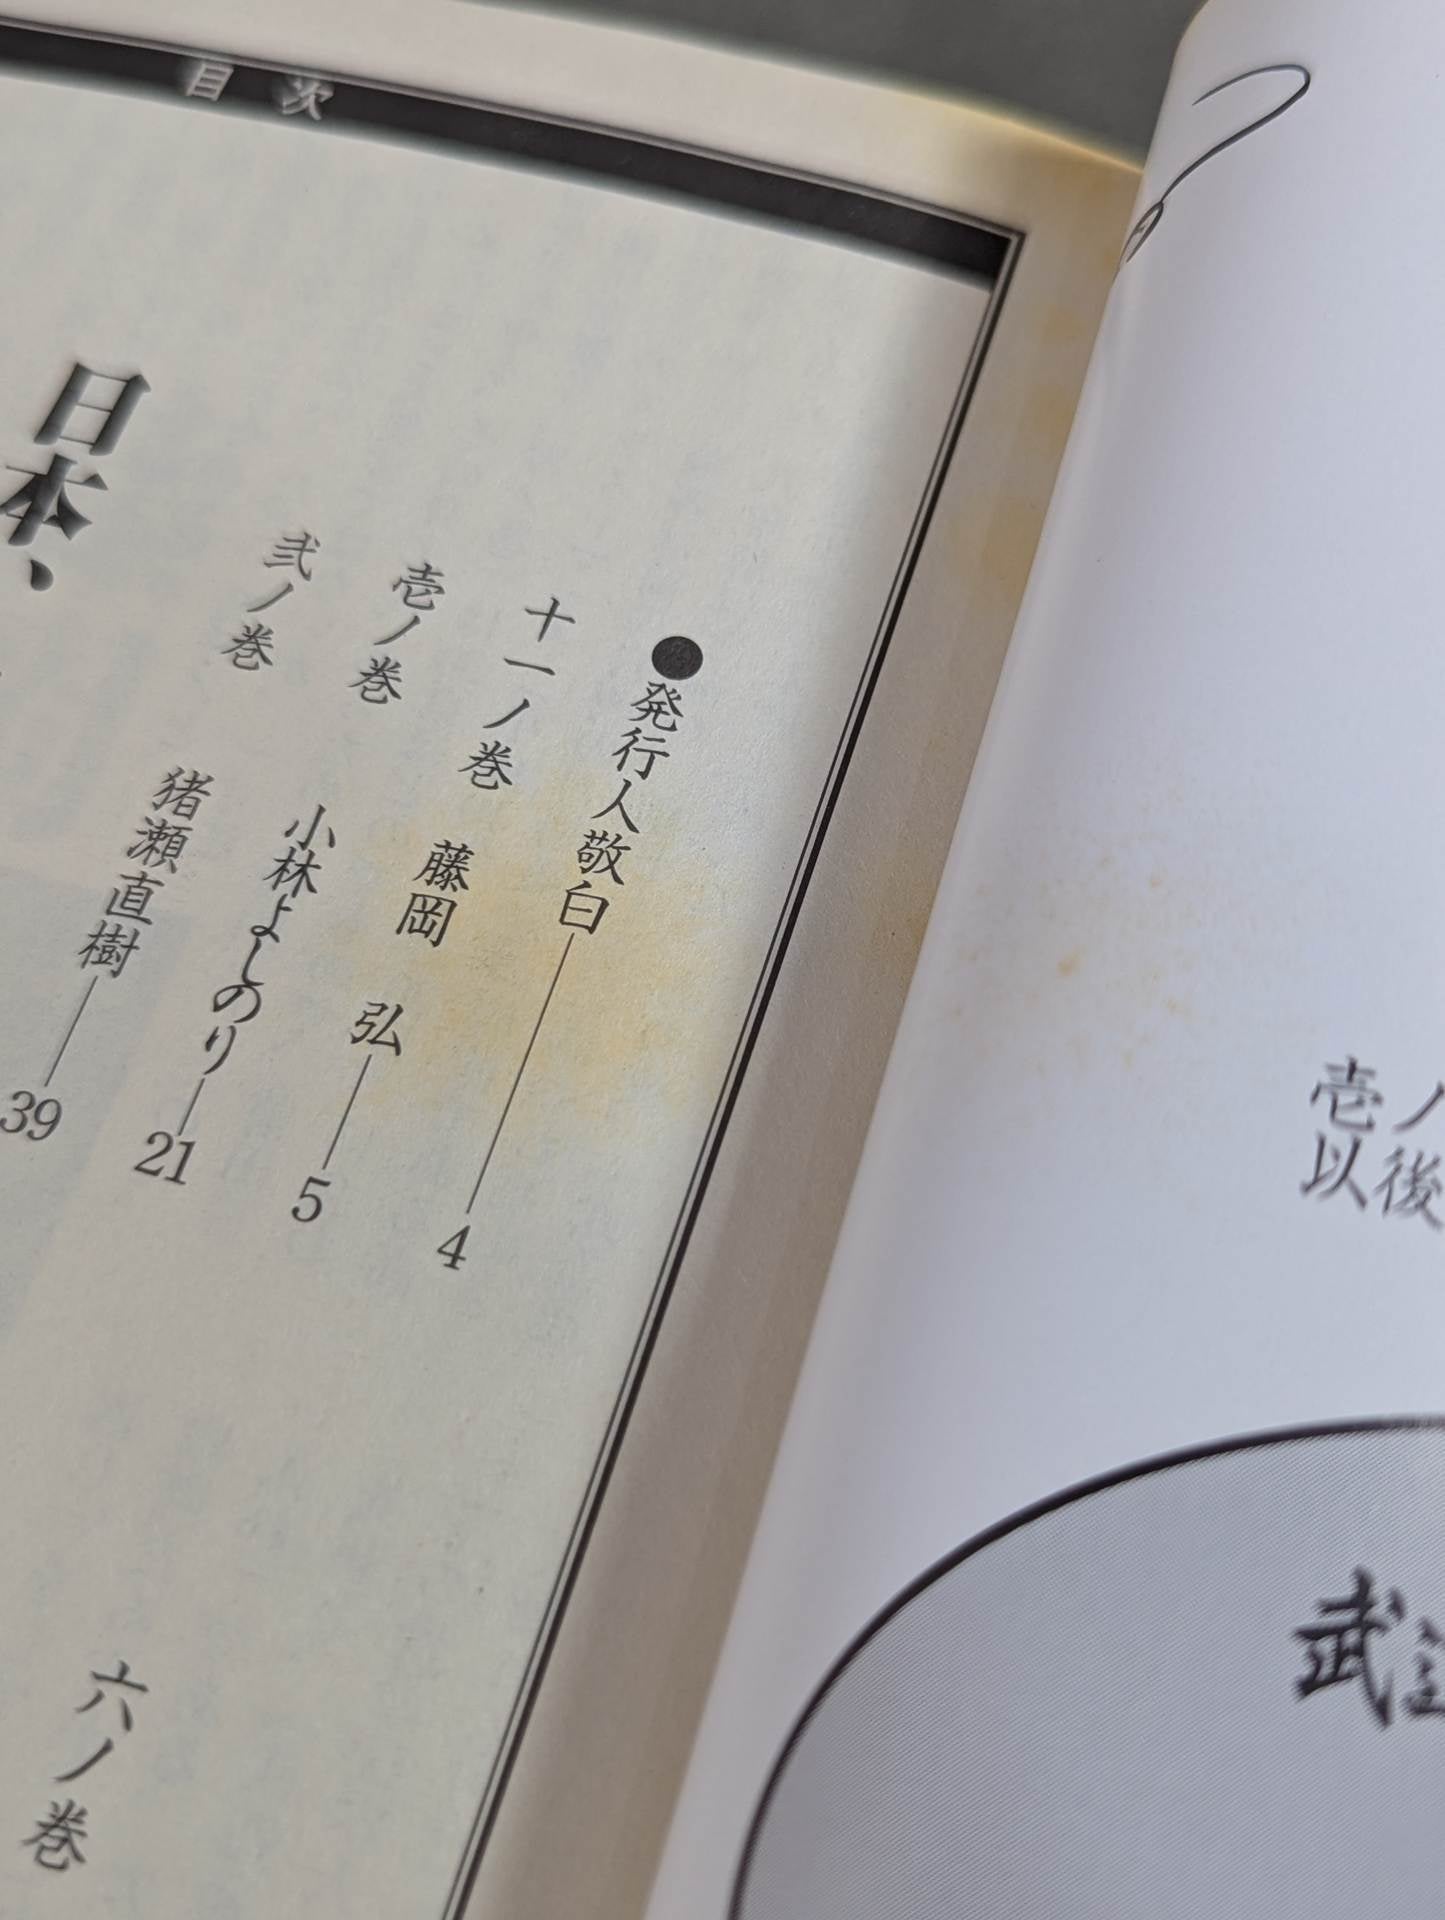 目次
●発行人敬白――4
十一ノ巻 藤岡 弘――5
壱ノ巻 小林よしのり――21
弐ノ巻 猪瀬直樹――39
日本、
六ノ巻
壱ノ
以後
武